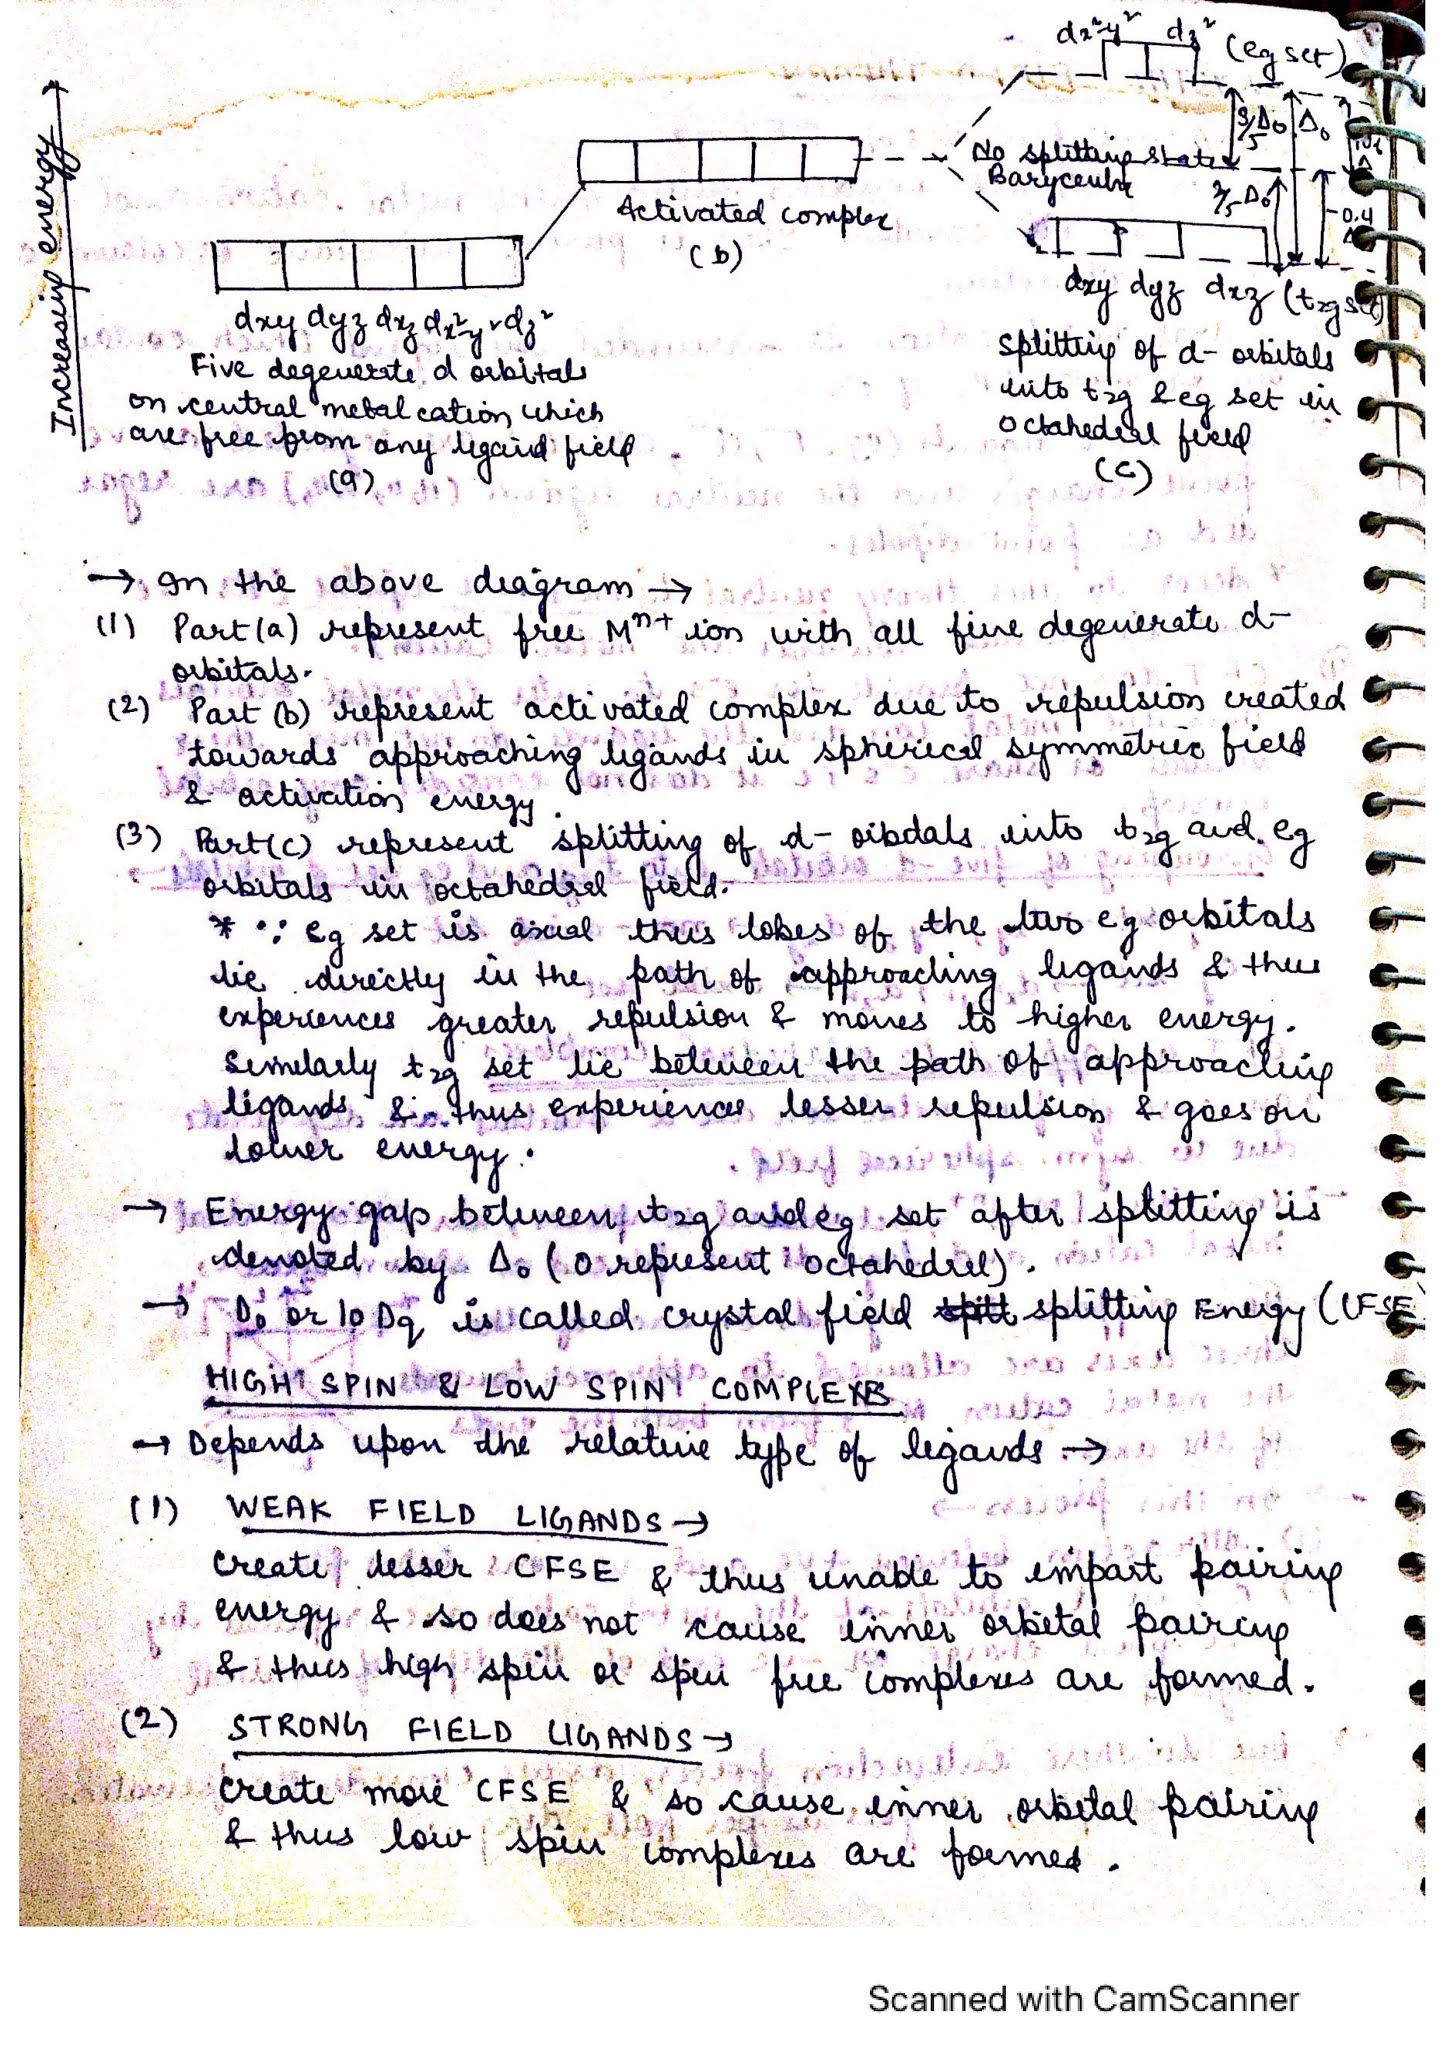 Increasing energy →
dx²-y² dz² (eg set)
3/5 Δo Δo
No splitting state
Barycentre
2/5 Δo -0.4
Activated complex
(b)
dxy dyz dxz dx²-y² dz²
dxy dyz dxz (t2g set)
Five degenerate d orbitals
on central metal cation which
are free from any ligand field
(a)
splitting of d- orbitals
into t2g & eg set in
octahedral field
(c)
→ In the above diagram →
(1) Part (a) represent free Mⁿ⁺ ion with all five degenerate d-
orbitals.
(2) Part (b) represent activated complex due to repulsion created
towards approaching ligands in spherical symmetric field
& activation energy.
(3) Part (c) represent splitting of d- oibdals into t2g and eg
orbitals in octahedral field.
* ∵ eg set is axial thus lobes of the two eg orbitals
lie directly in the path of approaching ligands & thus
experiences greater repulsion & moves to higher energy.
Similarly t2g set lie between the path of approaching
ligands & thus experiences lesser repulsion & goes on
lower energy.
→ Energy gap between t2g and eg set after splitting is
denoted by Δo (o represent octahedral).
→ Do or 10 Dq is called crystal field splitting Energy (CFSE
HIGH SPIN & LOW SPIN COMPLEXES
→ Depends upon the relative type of ligands →
(1) WEAK FIELD LIGANDS →
Create lesser CFSE & thus unable to impart pairing
energy & so does not cause inner orbital pairing
& thus high spin or spin free complexes are formed.
(2) STRONG FIELD LIGANDS →
Create more CFSE & so cause inner orbital pairing
& thus low spin complexes are formed.
Scanned with CamScanner